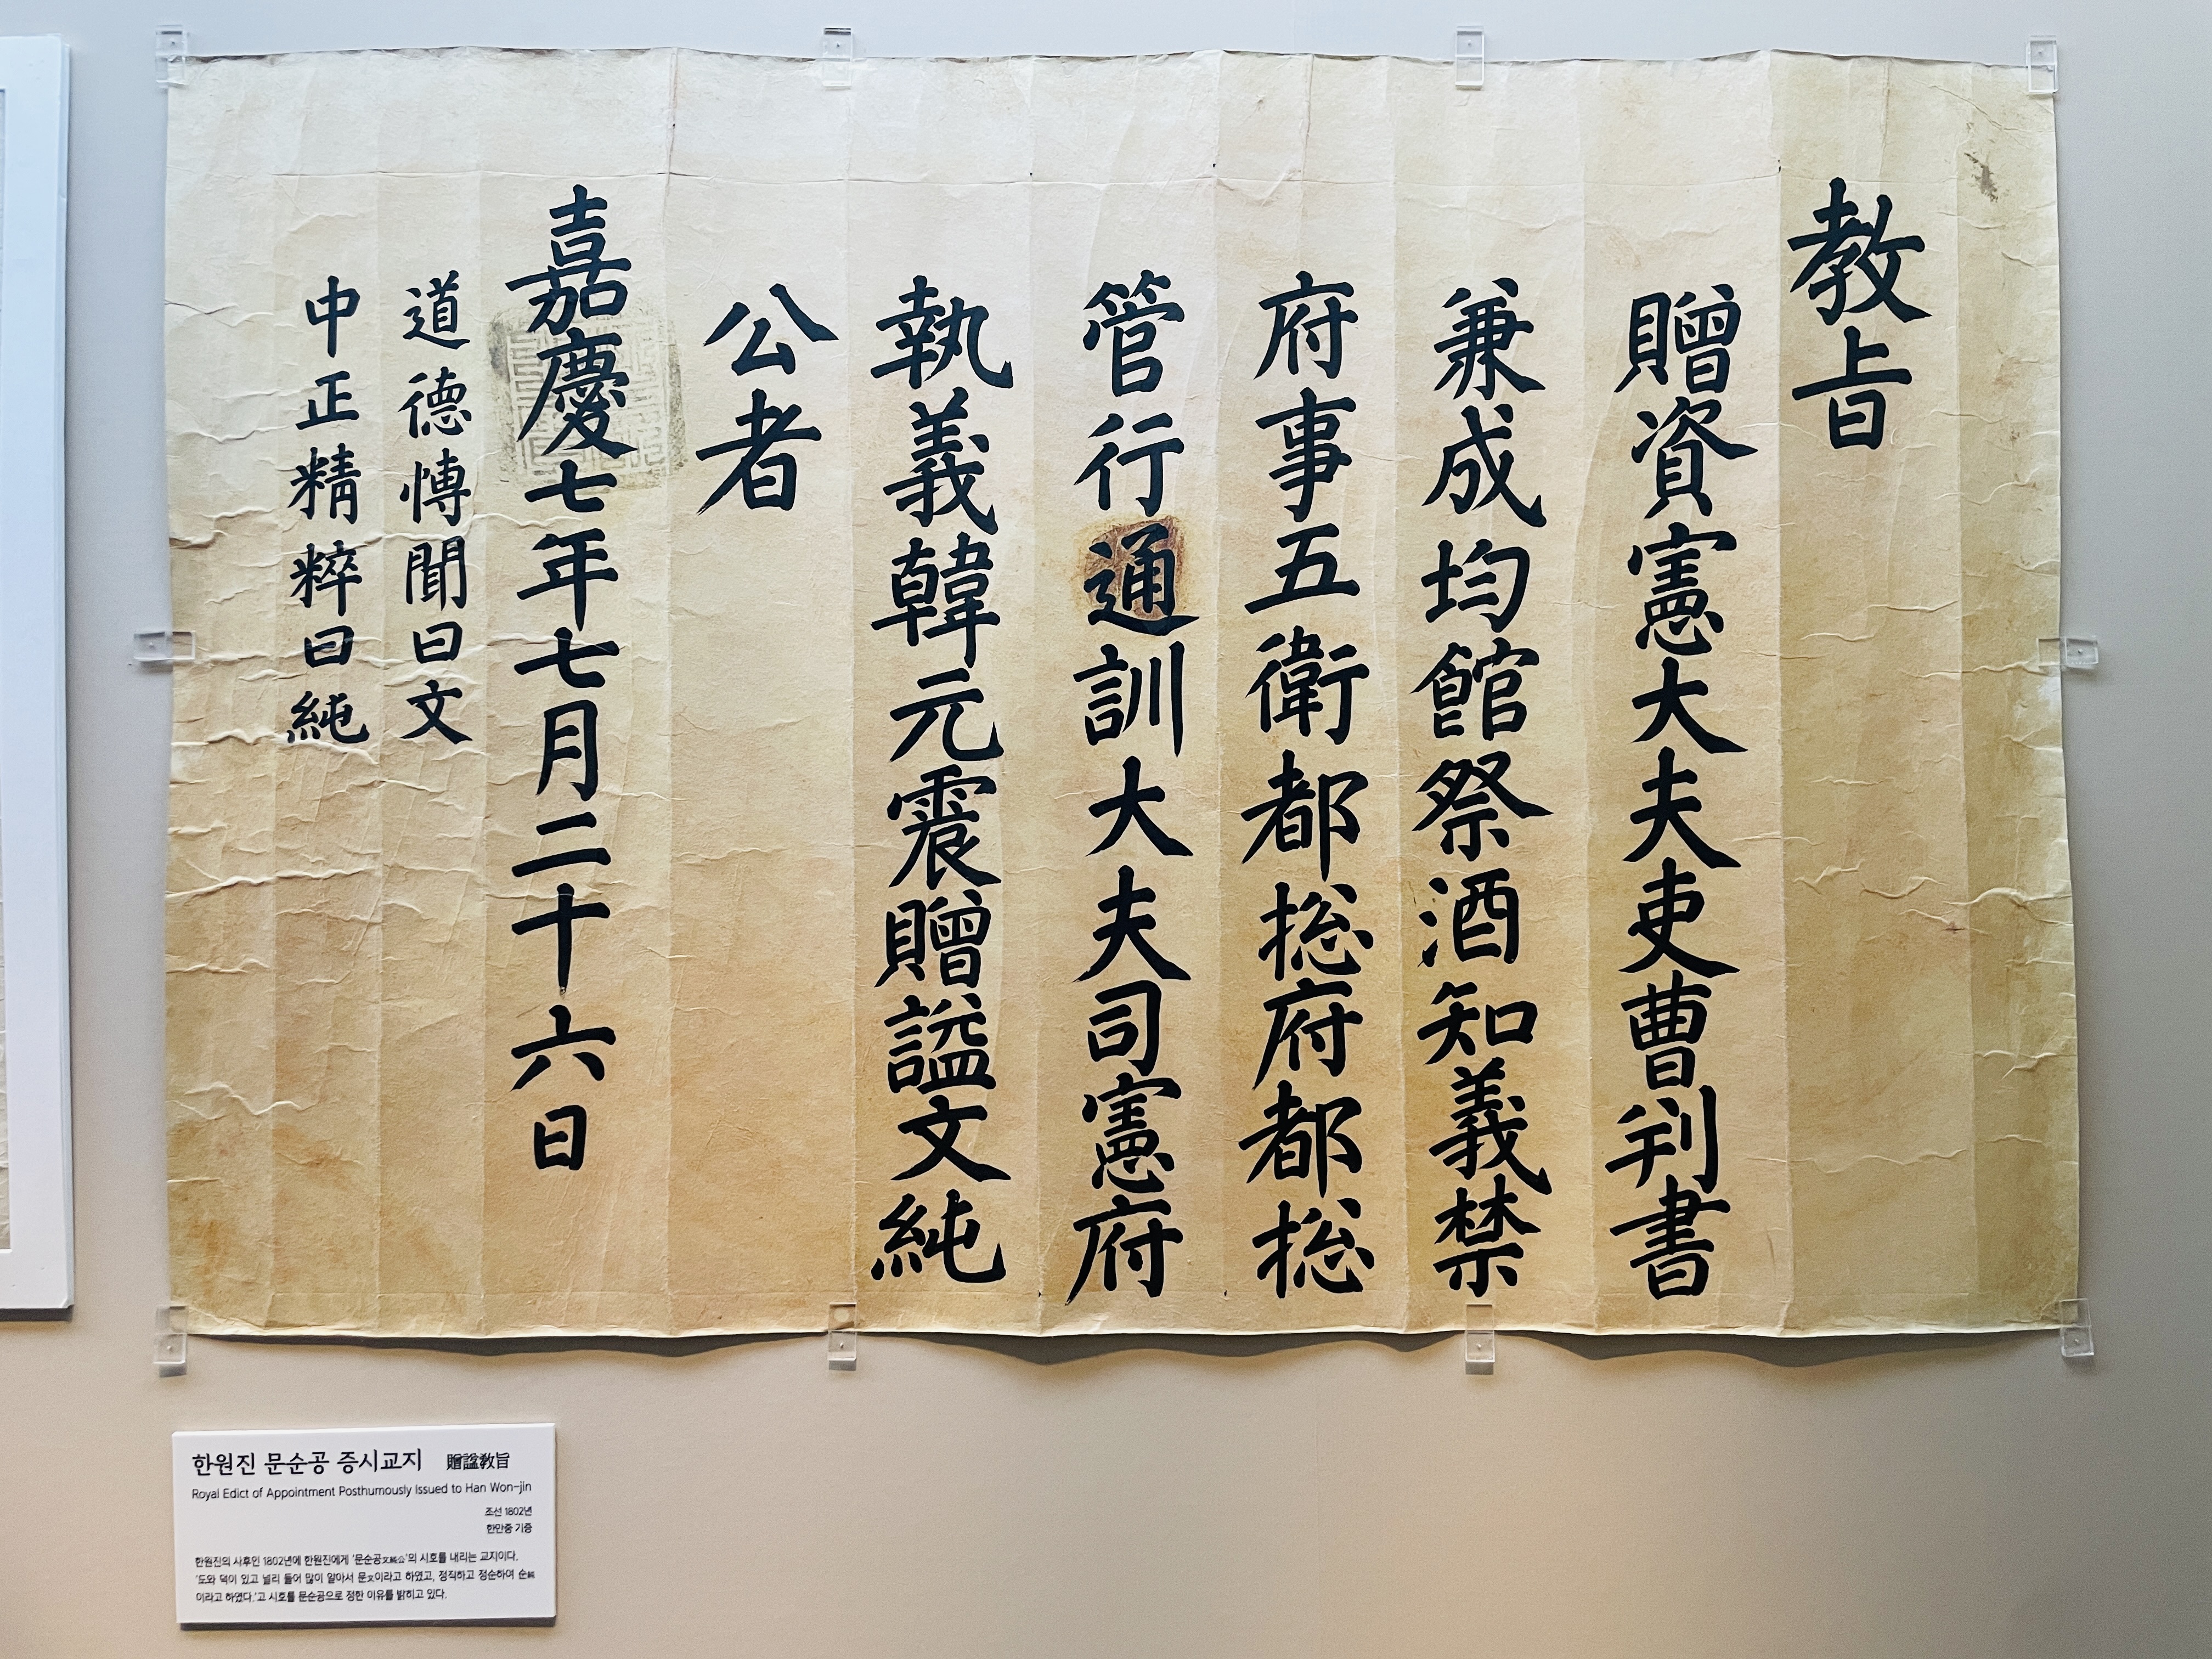 教旨
贈資憲大夫吏曹判書
兼成均館祭酒知義禁
府事五衛都摠府都摠
管行通訓大夫司憲府
執義韓元震贈諡文純
公者
嘉慶七年七月二十六日
道德博聞曰文
中正精粹曰純
한원진 문순공 증시교지 贈諡敎旨
Royal Edict of Appointment Posthumously Issued to Han Won-jin
조선 1802년
한만중 기증
한원진의 사후인 1802년에 한원진에게 '문순공文純公'의 시호를 내리는 교지이다.
'도와 덕이 있고 널리 들어 많이 알아서 문文이라고 하였고, 정직하고 정순하여 순純
이라고 하였다.'고 시호를 문순공으로 정한 이유를 밝히고 있다.